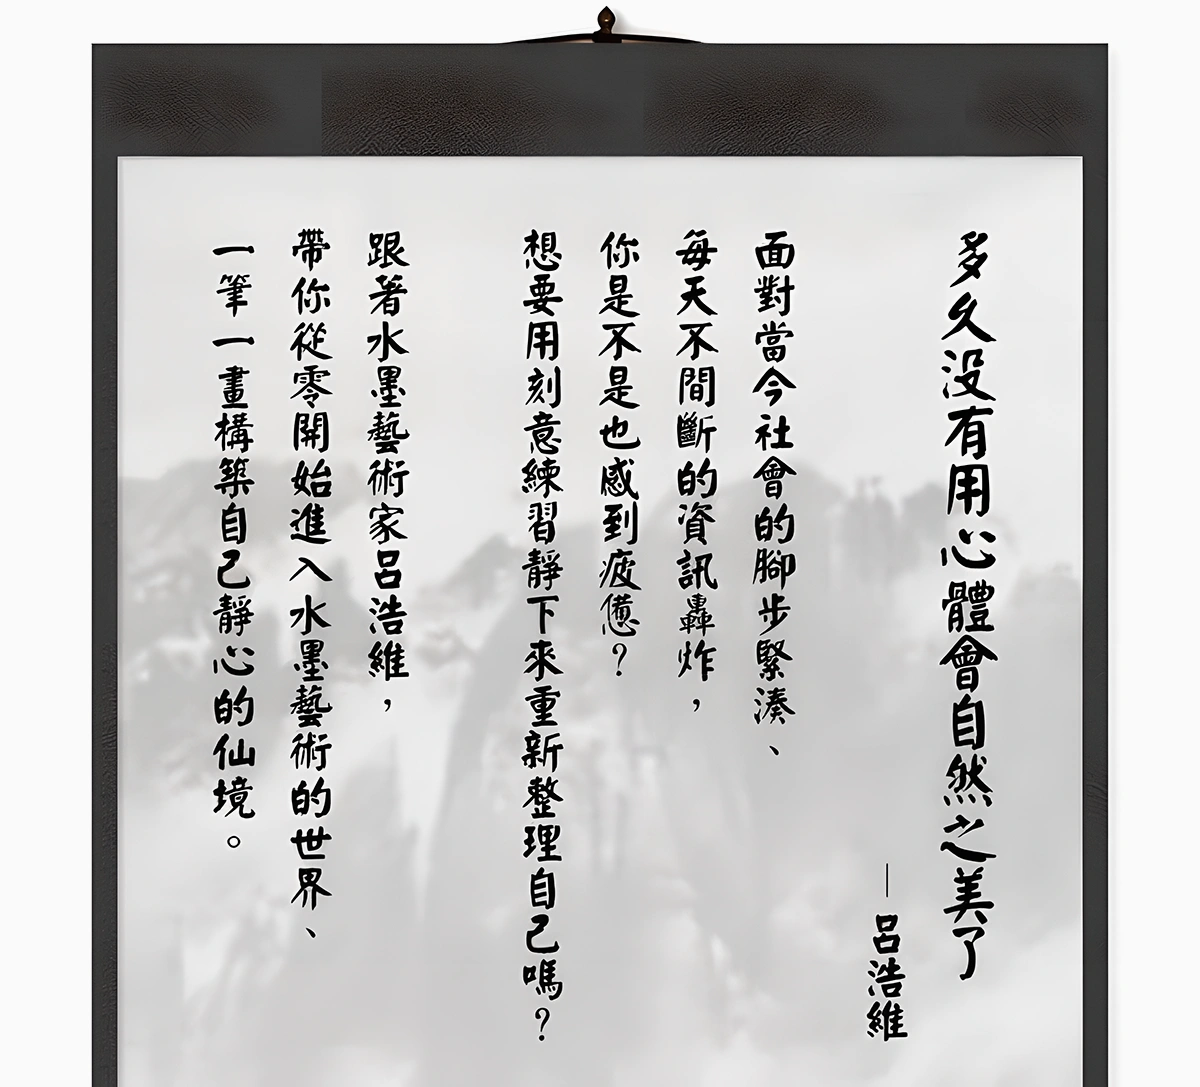 多久没有用心體會自然之美了
—呂浩維
面對當今社會的腳步緊湊、
每天不間斷的資訊轟炸，
你是不是也感到疲憊？
想要用刻意練習靜下來重新整理自己嗎？
跟著水墨藝術家呂浩維，
帶你從零開始進入水墨藝術的世界、
一筆一畫構築自己靜心的仙境。